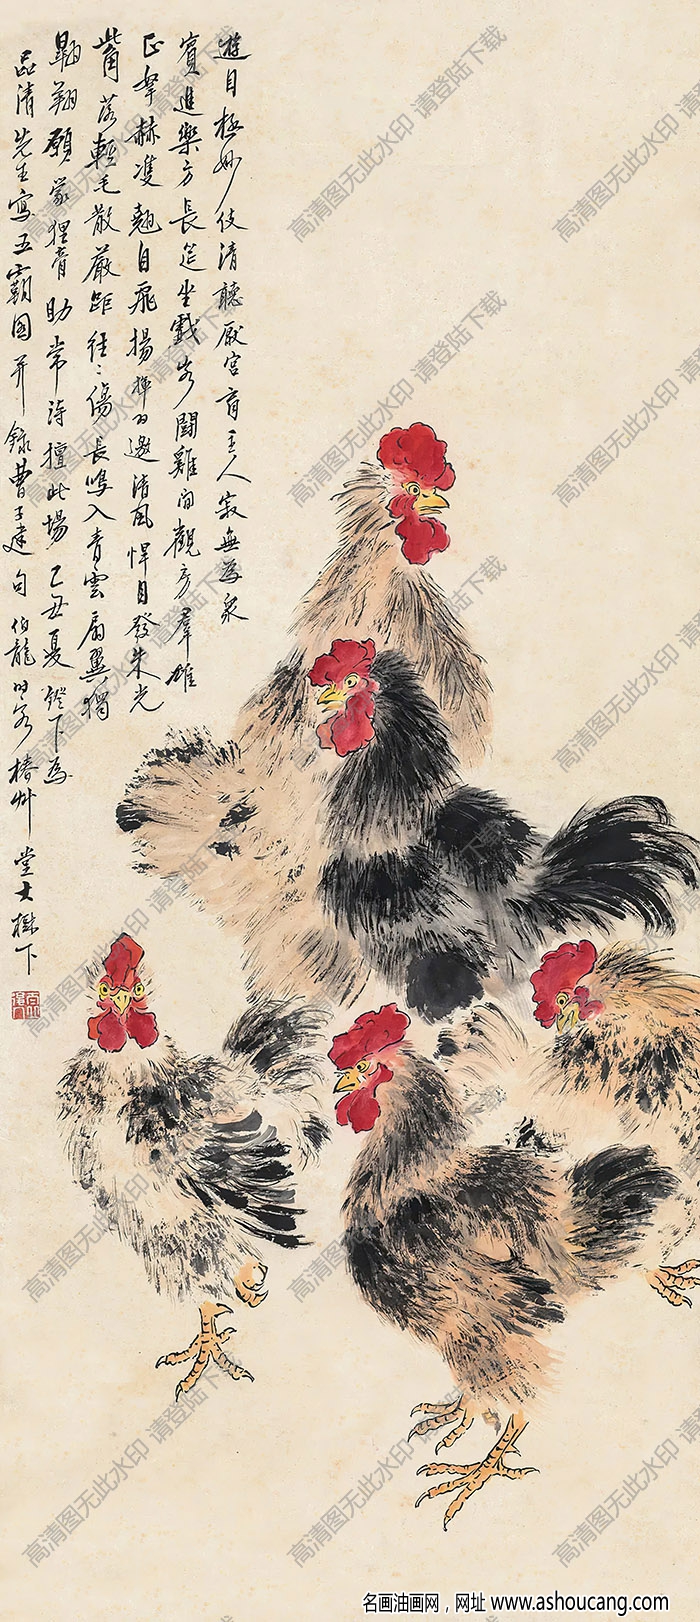 遊目極妙伎清聽厭宮商主人寂無為眾
賓進樂方長筵坐戲客鬪雞間觀房羣雄
正翕赫雙翹自飛揚揮羽邀清風悍目發朱光
觜落輕毛散嚴距往〻傷長鳴入青雲扇翼獨
翱翔願蒙狸膏助常得擅此場 乙丑夏鐙下為
品清先生寫五霸圖并錄曹子建句 伯龍時客椿艸堂大樹下
高清图无此水印 请登陆下载
名画油画网，网址 www.ashoucang.com